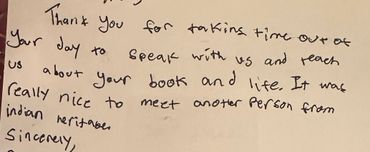 Thank you for taking time out of
your day to speak with us and teach
us about your book and life. It was
really nice to meet anoter Person from
indian heritage.
Sincerely,